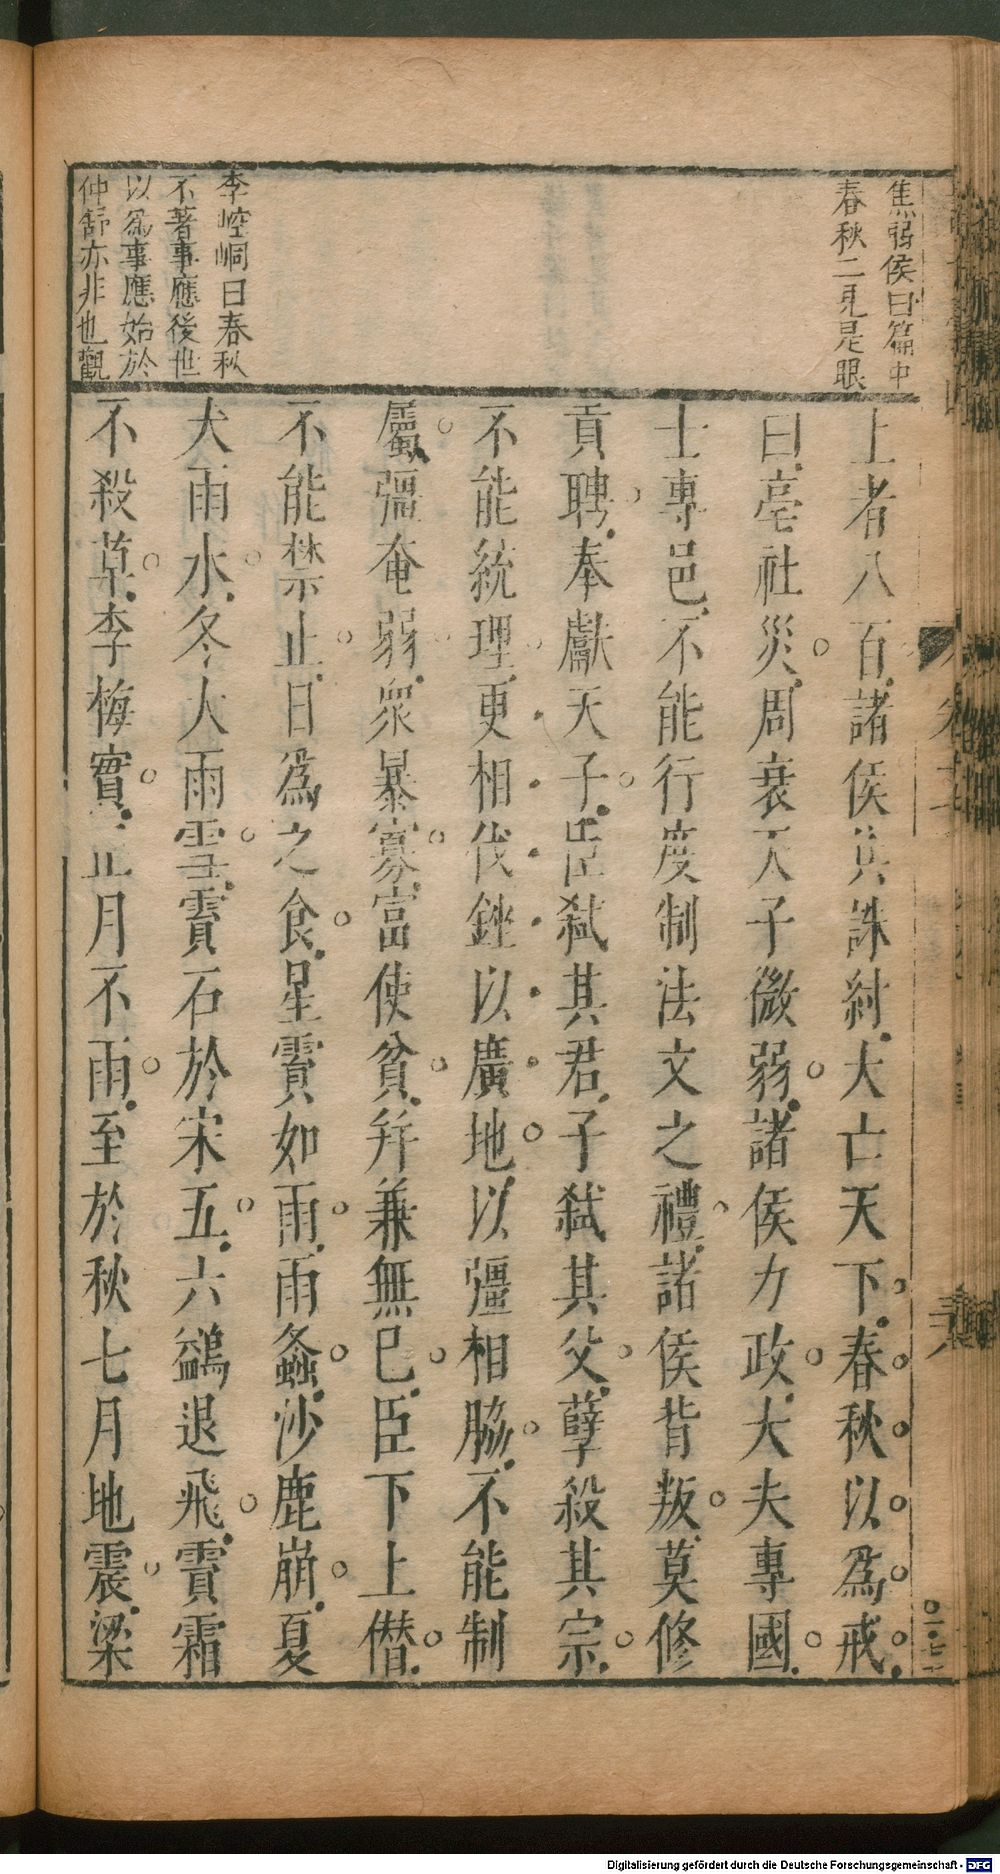 焦弱侯曰篇中
春秋二見是眼
李崆峒曰春秋
不著事應後世
以為事應始於
仲舒亦非也觀
上者八百諸侯共誅紂大亡天下春秋以為戒
曰亳社災周衰天子微弱諸侯力政大夫專國
士專邑不能行度制法文之禮諸侯背叛莫修
貢聘奉獻天子臣弑其君子弑其父孽殺其宗
不能統理更相伐銼以廣地以彊相脇不能制
屬彊奄弱衆暴寡富使貧并兼無已臣下上僣
不能禁止日爲之食星霣如雨雨螽沙鹿崩夏
大雨水冬大雨雪霣石於宋五六鷁退飛霣霜
不殺草李梅實正月不雨至於秋七月地震梁
Digitalisierung gefördert durch die Deutsche Forschungsgemeinschaft - DFG